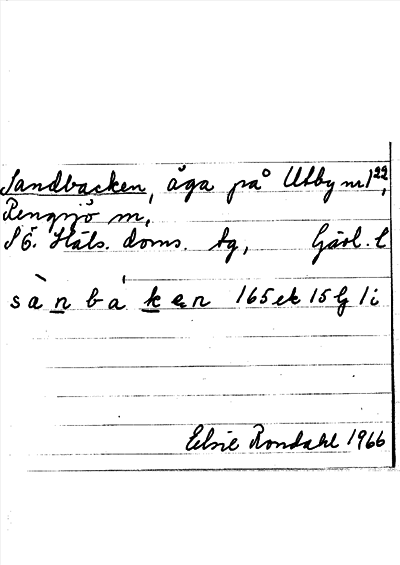 Sandbacken, äga på Utby nr 1²²,
Rengsjö sn,
S Ö. Häls. doms. tg, Gävl. l
sànbáken 165 ek 15 G 1 i
Elsie Rondahl 1966